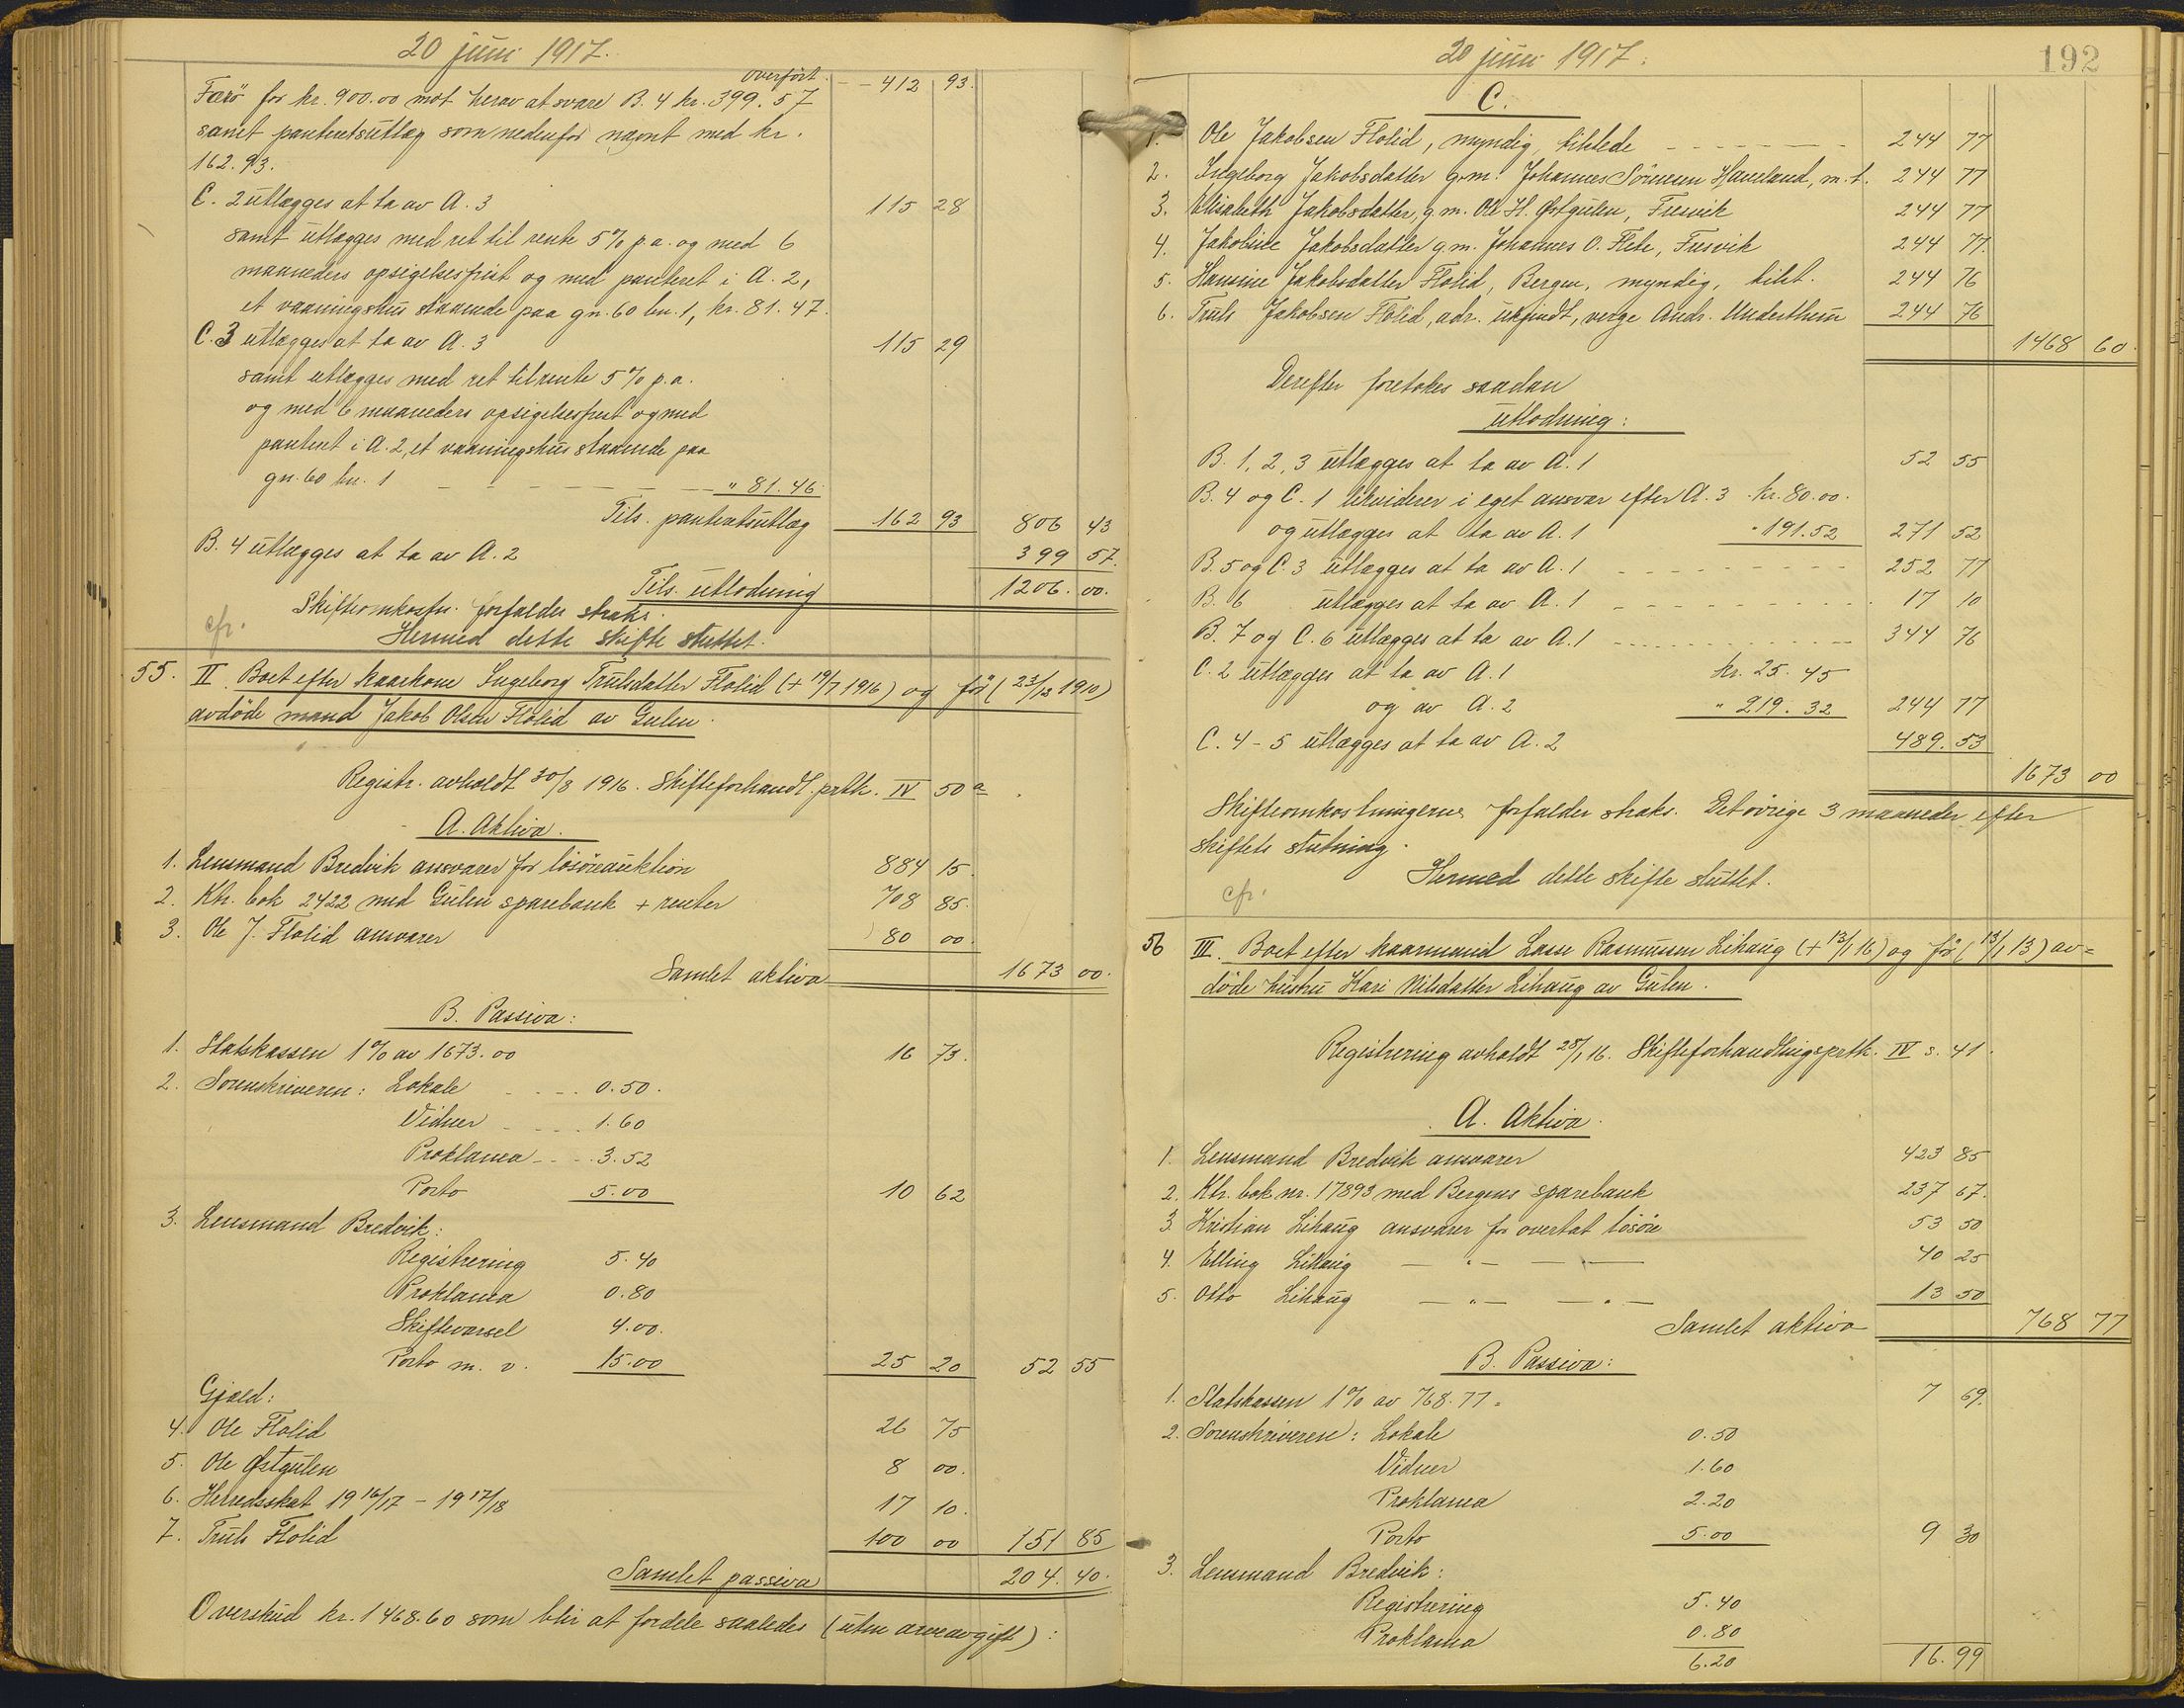 20 juni 1917.
overført. - 412 93.
Færø for kr. 900.00 mot herav at svare B. 4 kr. 399.57
samt panteretsutlæg som nedenfor nævnt med kr.
162.93.
C. 2 utlægges at ta av A. 3 115 28
samt utlægges med ret til rente 5% p.a. og med 6
maaneders opsigelsesfrist og med panteret i A. 2,
et vaaningshus staaende paa gn. 60 bn. 1, kr. 81.47.
C. 3 utlægges at ta av A. 3 115 29
samt utlægges med ret til rente 5% p.a.
og med 6 maaneders opsigelsesfrist og med
panteret i A. 2, et vaaningshus staaende paa
gn. 60 bn. 1 - - - - - " 81.46.
Tils. panteretsutlæg 162 93 806 43
B. 4 utlægges at ta av A. 2 399 57.
Tils. utlodning 1206. 00.
Skifteomkostn. forfalder straks.
cfr. Hermed dette skifte sluttet.
55. II. Boet efter kaarkone Ingeborg Trulsdatter Flolid (+ 19/7 1916) og før (23/12 1910)
avdøde mand Jakob Olsen Flolid av Gulen.
Registr. avholdt 30/8 1916. Skifteforhandl. prtk. IV 50 a.
A. Aktiva.
1. Lensmand Bredvik ansvarer for løsøreauktion 884 15.
2. Ktr. bok 2422 med Gulen sparebank + renter 708 85.
3. Ole J. Flolid ansvarer 80 00.
Samlet aktiva 1673 00.
B. Passiva:
1. Statskassen 1% av 1673.00 16 73.
2. Sorenskriveren: Lokale - - - 0.50.
Vidner - - - 1.60
Proklama - - - 3.52
Porto 5.00 10 62
3. Lensmand Bredvik:
Registrering 5.40
Proklama 0.80
Skiftevarsel 4.00.
Porto m. v. 15.00 25 20 52 55
Gjæld:
4. Ole Flolid 26 75
5. Ole Østgulen 8 00.
6. Herredsskat 19 16/17 - 19 17/18 17 10.
7. Truls Flolid 100 00 151 85
Samlet passiva 204. 40.
Overskud kr. 1468.60 som blir at fordele saaledes (uten arveavgift):
20 juni 1917. 192
C.
1. Ole Jakobsen Flolid, myndig, tilstede - - - - 244 77
2. Ingeborg Jakobsdatter g.m. Johannes Sörensen Haveland, m. t. 244 77
3. Elisabeth Jakobsdatter, g.m. Ole H. Østgulen, Fuesvik 244 77
4. Jakobine Jakobsdatter g.m. Johannes O. Flete, Fuesvik 244 77.
5. Hansine Jakobsdatter Flolid, Bergen, myndig, tilst. 244 76
6. Truls Jakobsen Flolid, adr. ukjendt, verge Andr. Underthun 244 76
1468 60.
Derefter foretokes saadan
utlodning:
B. 1, 2, 3 utlægges at ta av A. 1 52 55
B. 4 og C. 1 likviderer i eget ansvar efter A. 3 kr. 80.00.
og utlægges at ta av A. 1 " 191.52 271 52
B. 5 og C. 3 utlægges at ta av A. 1 - - - - 252 77
B. 6 utlægges at ta av A. 1 - - - - 17 10
B. 7 og C. 6 utlægges at ta av A. 1 - - - - 344 76
C. 2 utlægges at ta av A. 1 kr. 25.45
og av A. 2 " 219.32 244 77
C. 4 - 5 utlægges at ta av A. 2 489. 53
1673 00
Skifteomkostningerne forfalder straks. Det øvrige 3 maaneder efter
skiftets slutning.
Hermed dette skifte sluttet.
cfr.
56 III. Boet efter kaarmand Lasse Rasmussen Lihaug (+ 12/1 16) og før (13/1 13) av-
døde hustru Kari Nilsdatter Lihaug av Gulen.
Registrering avholdt 28/1 16. Skifteforhandlingsprtk. IV s. 41.
A. Aktiva.
1. Lensmand Bredvik ansvarer 423 85
2. Ktr. bok nr. 17893 med Bergens sparebank 237 67.
3. Kristian Lihaug ansvarer for overtat løsøre 53 50
4. Elling Lihaug - " - - " - 40 25
5. Otto Lihaug - " - - " - 13 50
Samlet aktiva 768 77
B. Passiva:
1. Statskassen 1% av 768.77. 7 69.
2. Sorenskriveren: Lokale 0.50
Vidner 1.60
Proklama 2.20
Porto 5.00 9 30
3. Lensmand Bredvik:
Registrering 5.40
Proklama 0.80
6.20 16.99